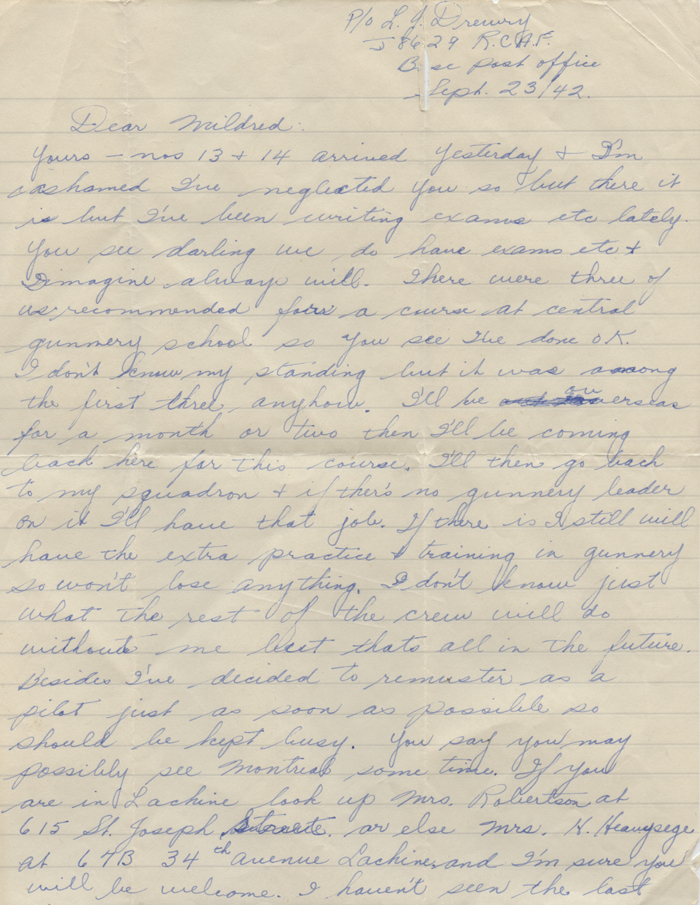 P/O L. J. Drewry
J 8629 R.C.A.F.
Base post office
Sept. 23/42.
Dear Mildred:
Yours – nos 13 & 14 arrived yesterday & I'm
ashamed I've neglected you so but there it
is but I've been writing exams etc lately.
You see darling we do have exams etc &
I imagine always will. There were three of
us recommended for a course at central
gunnery school so you see I've done OK.
I don't know my standing but it was among
the first three anyhow. I'll be overseas
for a month or two then I'll be coming
back here for this course. I'll then go back
to my squadron & if there's no gunnery leader
on it I'll have that job. If there is I still will
have the extra practice & training in gunnery
so won't lose anything. I don't know just
what the rest of the crew will do
without me but thats all in the future.
Besides I've decided to remuster as a
pilot just as soon as possible so
should be kept busy. You say you may
possibly see Montreal some time. If you
are in Lachine look up Mrs. Robertson at
615 St. Joseph Street. or else Mrs. H. Heavysege
at 67B 34th avenue Lachine and I'm sure you
will be welcome. I haven't seen the last